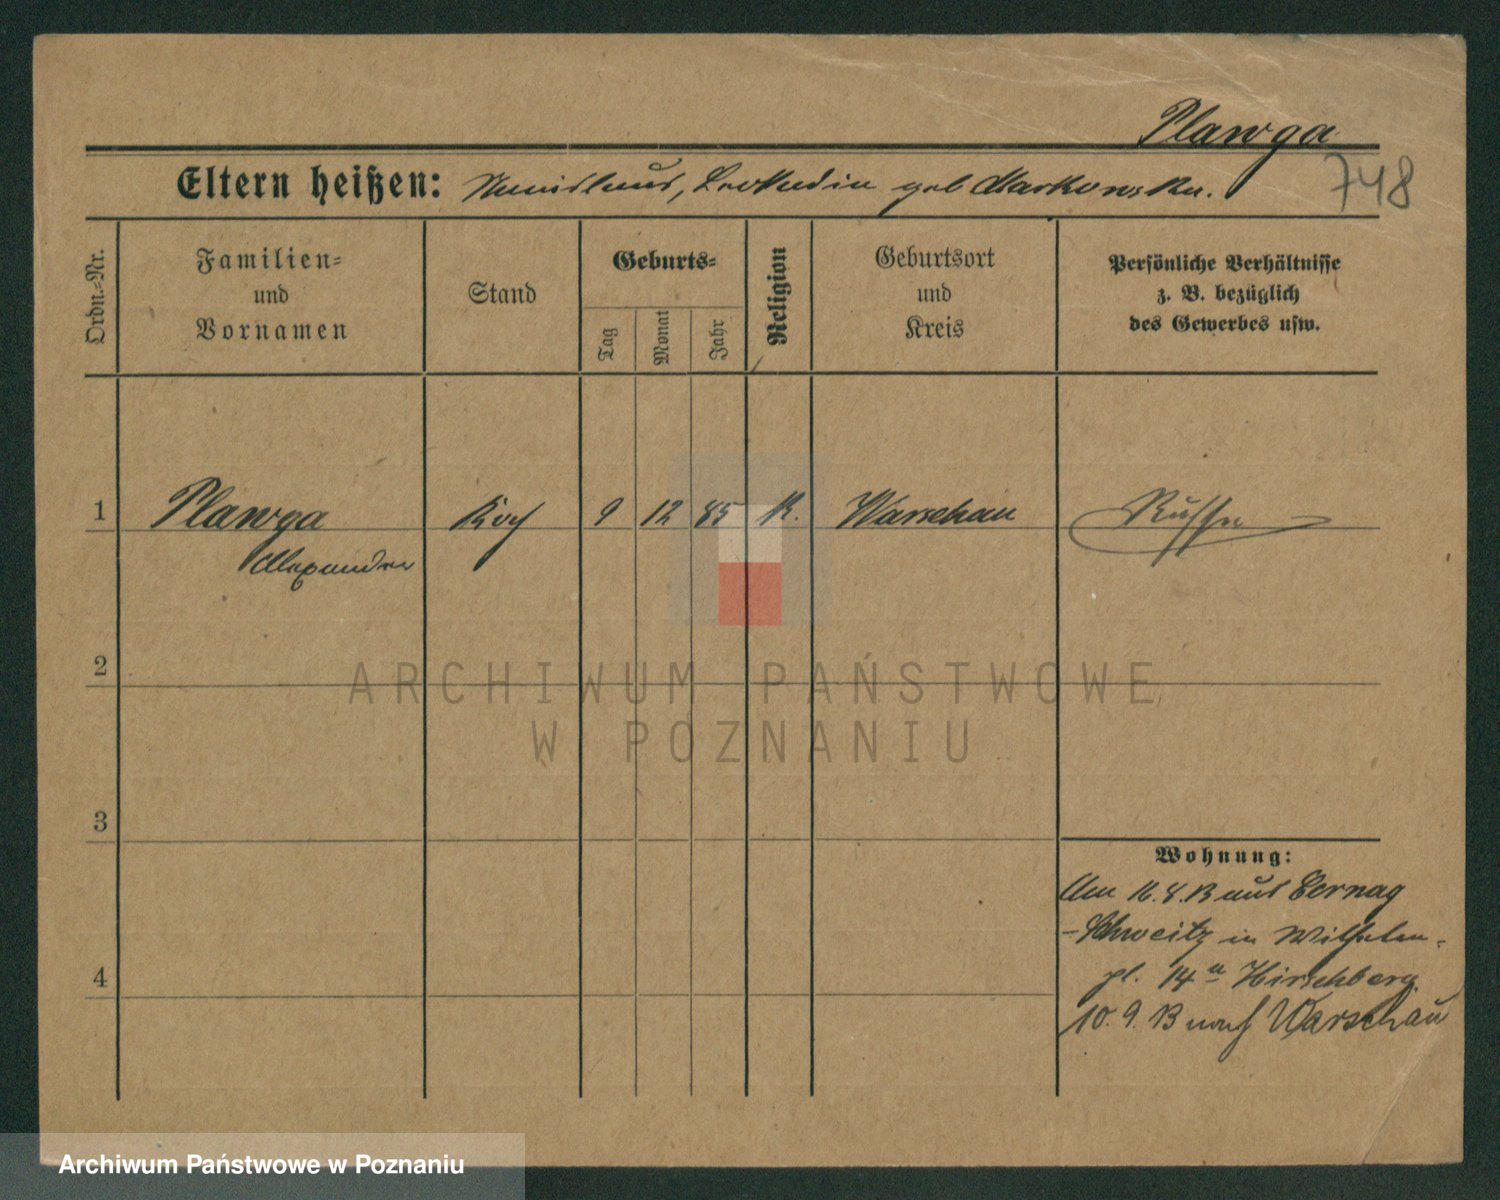 Plawga
748
Eltern heißen: Stanislaus, Leokadia geb Markowska.
Ordn.-Nr.
Familien-
und
Vornamen
Stand
Geburts-
Tag
Monat
Jahr
Religion
Geburtsort
und
Kreis
Persönliche Verhältnisse
z. B. bezüglich
des Gewerbes usw.
1 Plawga Koch 9 12 85 K. Warschau Russe
Alexander
2
3
4
Wohnung:
16.8.13 aus
-Schweitz in Wilhelm-
pl. 14 Hirschberg.
10.9.13 nach Warschau
ARCHIWUM PAŃSTWOWE
W POZNANIU
Archiwum Państwowe w Poznaniu